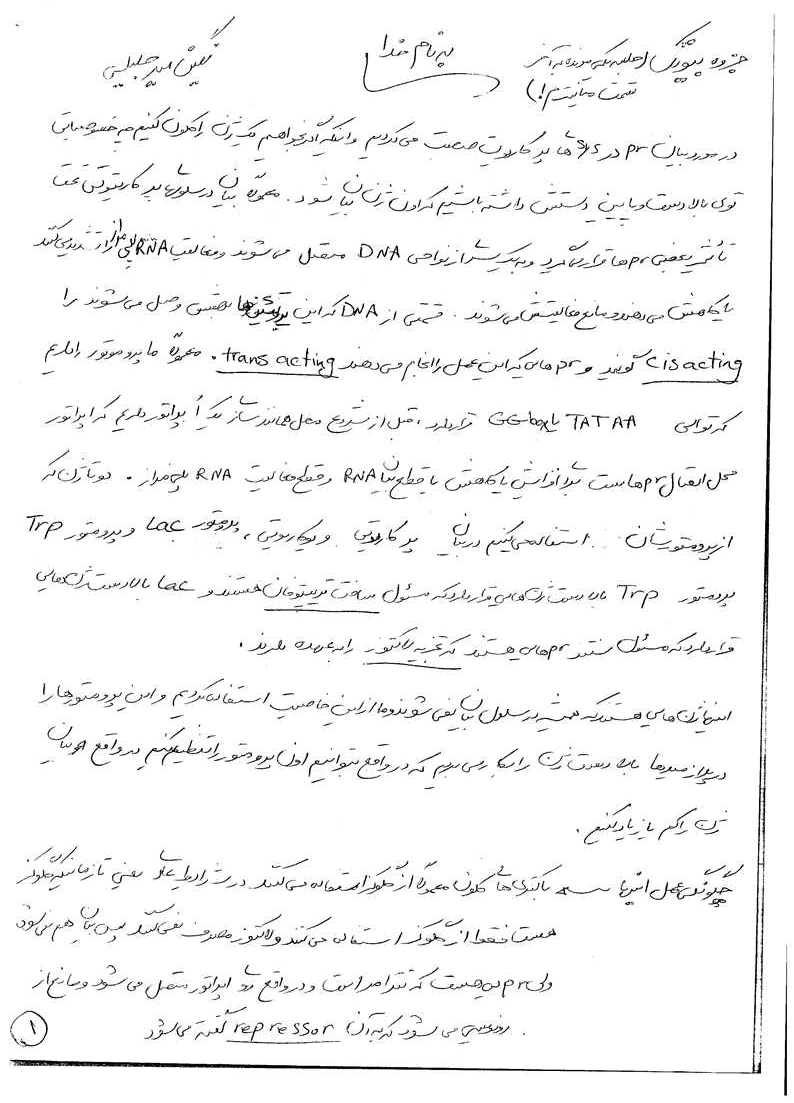 به نام خدا
جزوه بیوتک (جلسه یکی مونده به آخر
قسمت میانترم!)
در مورد بیان pr در sys ها پروکاریوت صحبت می کردیم و اینکه اگر بخواهیم یک ژن را کلون کنیم چه خصوصیاتی
توی بالا دست و پایین دستش داشته باشیم که اون ژن بیان شود. معمولاً بیان در سلولهای پروکاریوتی تحت
تأثیر بعضی prها قرار می گیرد و به یک سری از نواحی DNA متصل می شوند و فعالیت RNA پلی مراز را تشدید می کند
یا کاهش می دهند و مانع فعالیتش می شوند. قسمتی از DNA که این پروتئین ها بهش وصل می شوند را
cis acting گویند و prهایی که این عمل را انجام می دهند trans acting. معمولاً ما پروموتور را داریم
که توالی TATAA یا GG box قرار دارد، قبل از شروع محل همانندساز یک اپراتور داریم که اپراتور
محل اتصال prهاست برای افزایش یا کاهش یا قطع بیان RNA و قطع فعالیت RNA پلی مراز. دو تا ژن که
از پروموتورشان استفاده می کنیم در بیان پروکاریوتی و یوکاریوتی، پروموتور lac و پروموتور Trp
پروموتور Trp بالا دست ژن هایی قرار دارد که مسئول ساخت تریپتوفان هستند و lac بالا دست ژن هایی
قرار دارد که مسئول سنتز prهایی هستند که تجزیه لاکتوز را به عهده دارند.
اینها ژن هایی هستند که همیشه در سلول بیان نمی شوند و ما از این خاصیت استفاده کردیم و این پروموتورها را
در پلازمیدها بالا دست ژن را بکار می بریم که در واقع بتوانیم اون پروموتور را تنظیم کنیم در واقع بیان
ژن را کم یا زیاد کنیم.
چگونگی عمل اینها ← باکتری ها کلون معمولاً از گلوکز استفاده می کنند در شرایط عادی یعنی تا زمانیکه گلوکز
هست فقط از گلوکز استفاده می کنند و لاکتوز مصرف نمی کنند پس بیان هم نمی شود
ولی pr یی هست که تترامر است و در واقع به اپراتور متصل می شود و مانع از
رونویسی می شود که به آن repressor گفته می شود.
۱